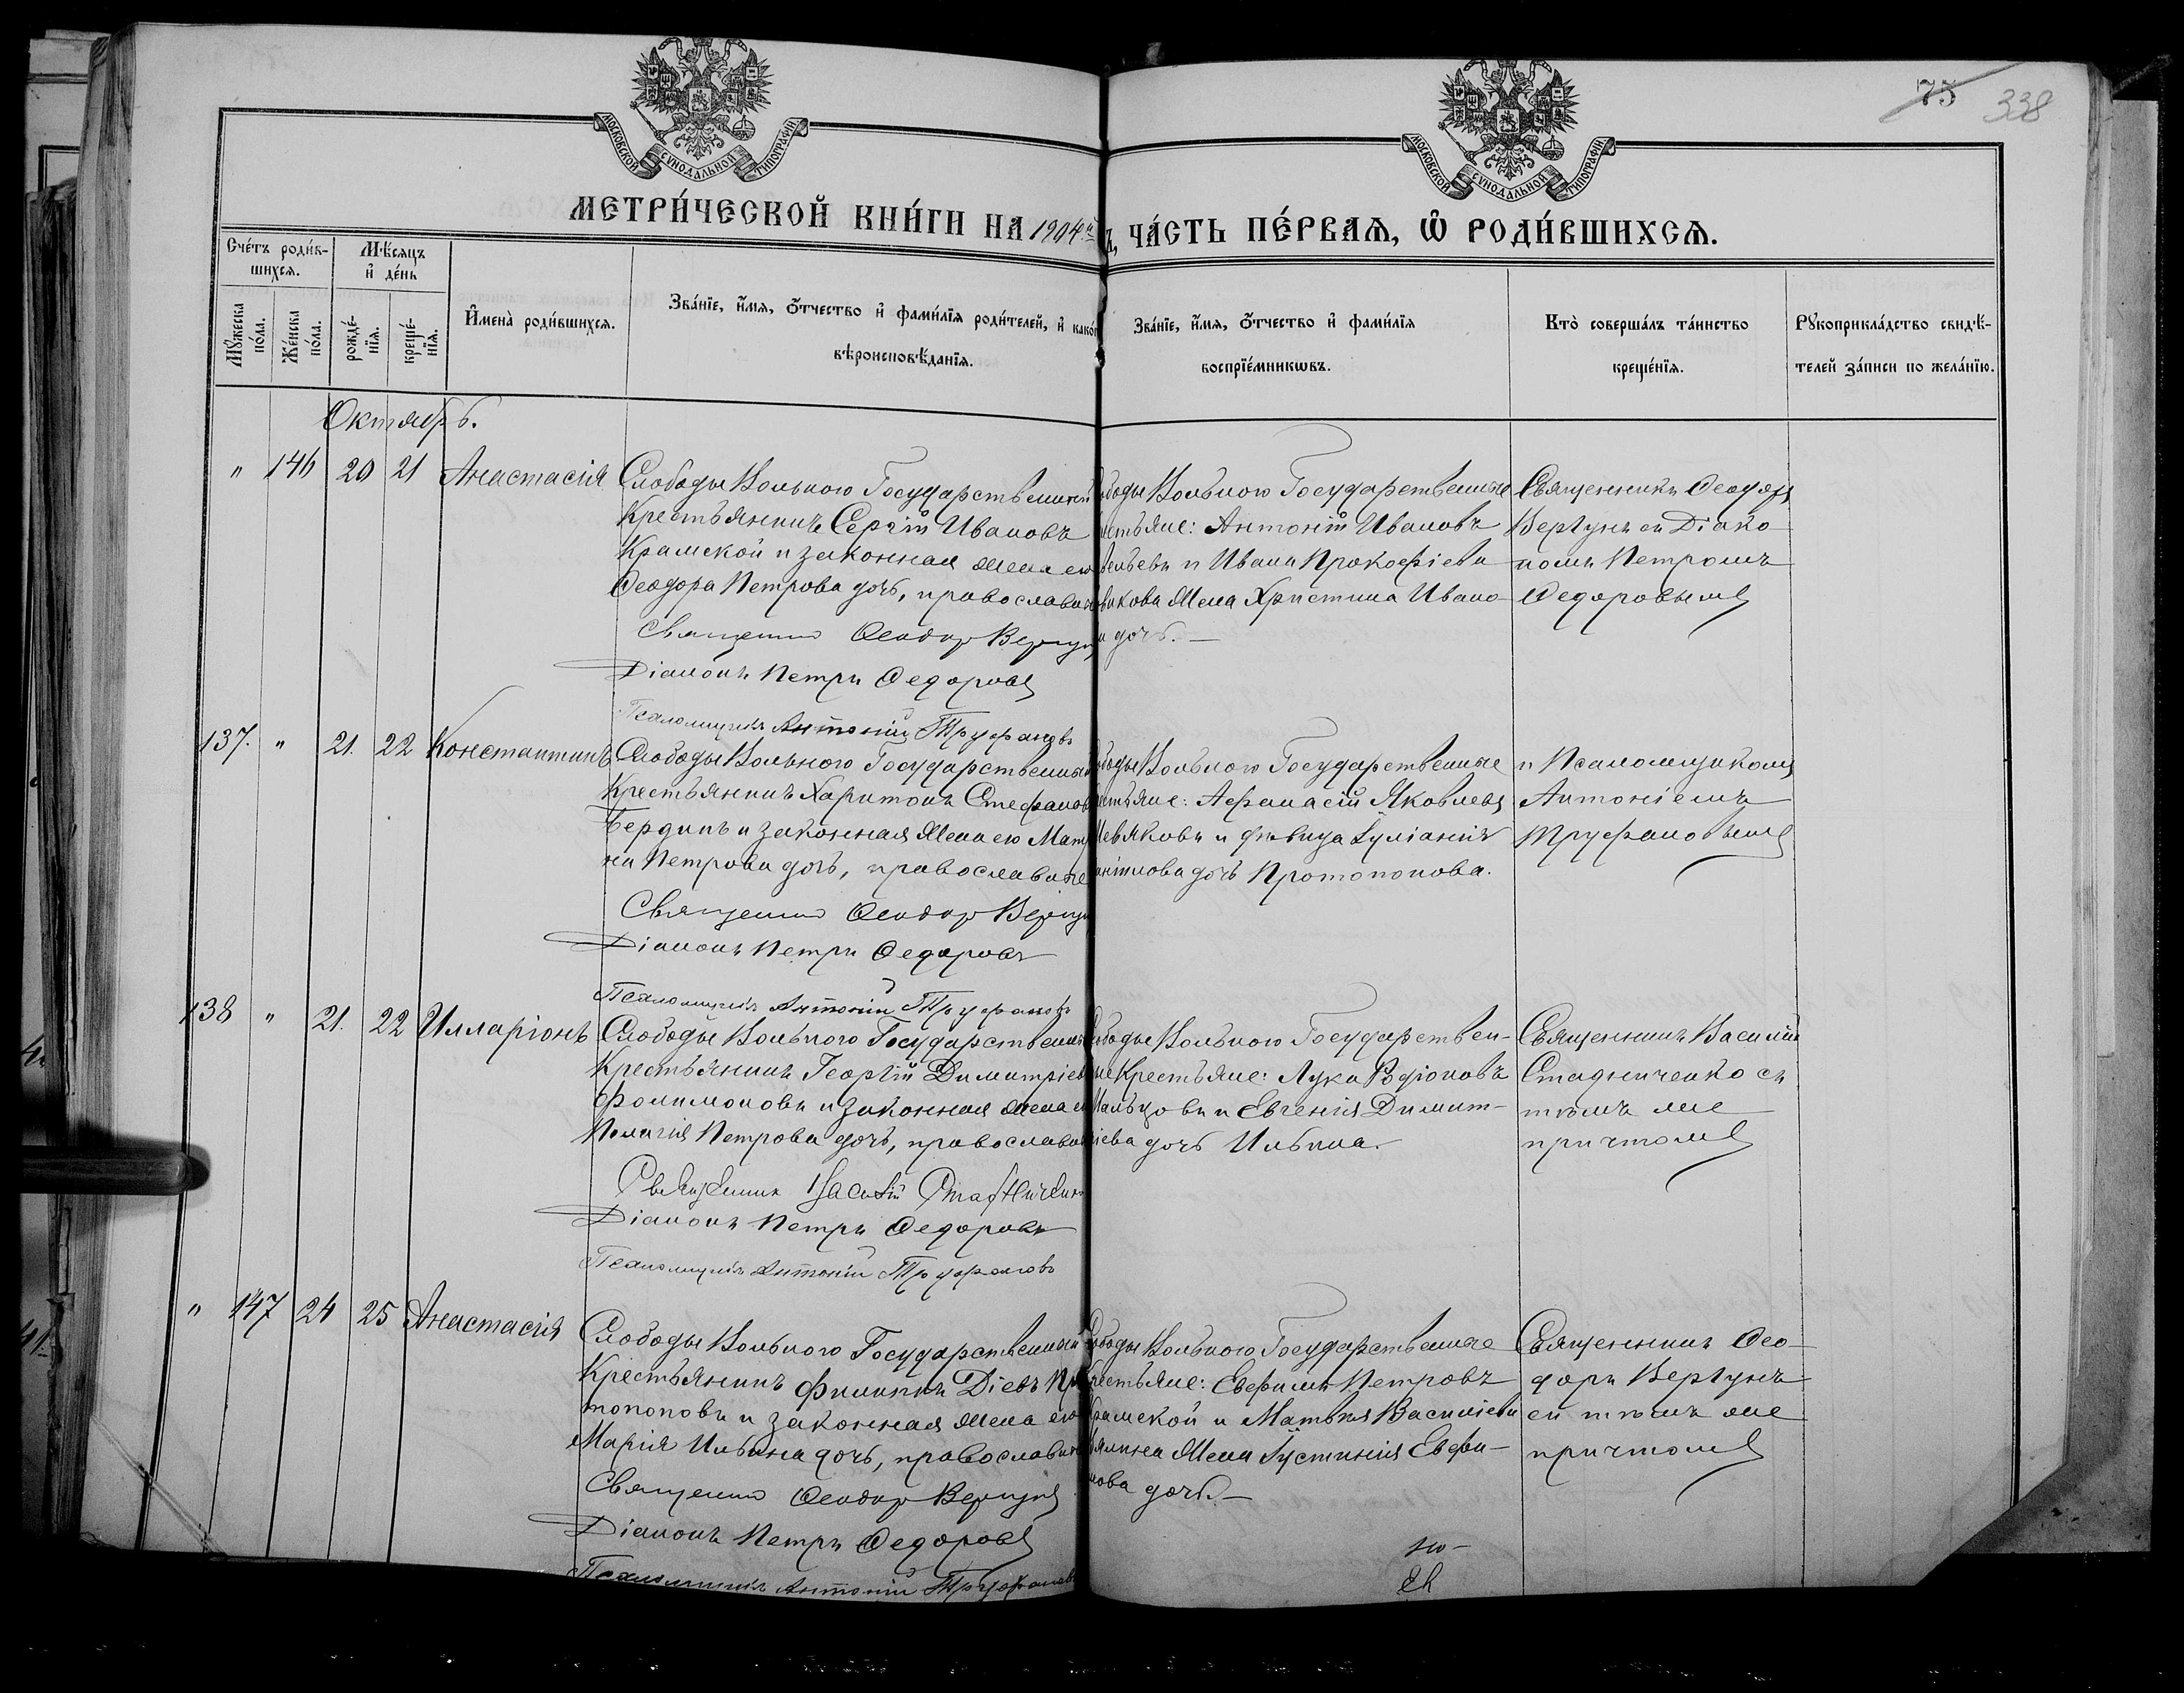 МОСКОВСКОЙ СУНОДАЛЬНОЙ ТИПОГРАФІИ
МОСКОВСКОЙ СУНОДАЛЬНОЙ ТИПОГРАФІИ
75 338
МЕТРИ́ЧЕСКОЙ КНИ́ГИ НА 1904 й
ЧА́СТЬ ПЕ́РВАѦ, Ѿ РОДИ́ВШИХСѦ.
Сче́тъ роди́в-
шихсѧ.
Мꙋ́жеска по́ла.
Же́нска по́ла.
Мѣ́сяцъ
и҆ де́нь
рожде́-
нїѧ.
креще́-
нїѧ.
И҆мена̀ роди́вшихсѧ.
Зва́нїе, и҆́мѧ, ѻ҆́тчество и҆ фами́лїѧ роди́телей, и҆
вѣроисповѣ́данїѧ.
Зва́нїе, и҆́мѧ, ѻ҆́тчество и҆ фами́лїѧ
воспрїе́мникѡвъ.
Кто̀ соверша́лъ та́инство
креще́нїѧ.
Рꙋкоприкла́дство свидѣ́-
телей за́писи по жела́нїю.
Октябрь.
" 146 20 21 Анастасія
Слободы Вольного Государственный
Крестьянинъ Сергій Ивановъ
Крамской и законная жена его
Ѳеодора Петрова дочь, православн
Священник Ѳеодор Вергун
Діаконъ Петръ Ѳедоровъ
Псаломщикъ Антоній Труфановъ
ободы Вольного Государственные
естьяне: Антоній Ивановъ
и Ивана Прокофіева
жена Христина Ивано-
а дочь. —
Священникъ Ѳеодоръ
Вергунъ съ Діако
номъ Петромъ
Ѳедоровымъ
137. " 21. 22 Константинъ
Слободы Вольного Государственный
Крестьянинъ Харитонъ Стефанов
Бердинъ и законная жена его Мат
на Петрова дочь, православные
Священник Ѳеодор Вергун
Діаконъ Петръ Ѳедоровъ
Псаломщикъ Антоній Труфановъ
ободы Вольного Государственные
естьяне: Афанасій Яковлевъ
и дѣвица Іуліанія
дочь Протопопова.
и Псаломщикомъ
Антоніемъ
Труфановымъ
138 " 21. 22 Илларіонъ
Слободы Вольного Государственный
Крестьянинъ Георгій Димитріев
Филимоновъ и законная жена е
Пелагія Петрова дочь, православн
Священник Василій Стадниченко
Діаконъ Петръ Ѳедоровъ
Псаломщикъ Антоній Труфановъ
ободы Вольного Государствен-
ные Крестьяне: Лука Родіоновъ
Мальцовъ и Евгенія Димит-
ріева дочь Ильина.
Священникъ Василій
Стадниченко съ
тѣмъ же
причтомъ
" 147 24 25 Анастасія
Слободы Вольного Государственный
Крестьянинъ Филиппъ Діевъ Про
топоповъ и законная жена его
Марія Ильина дочь, православн
Священник Ѳеодор Вергунъ
Діаконъ Петръ Ѳедоровъ
Псаломщикъ Антоній Труфановъ
ободы Вольного Государственные
рестьяне: Евфимъ Петровъ
Крамской и Матвея Василіева
жена Іустинія Евфи-
мова дочь. —
Священникъ Ѳео-
доръ Вергунъ
съ тѣмъ же
причтомъ